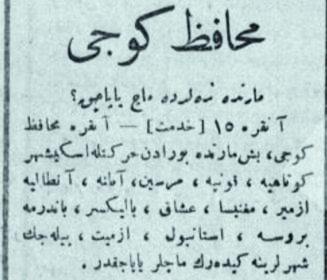 محافظ كوجى
مارتده نره‌لرده ماچ ياپاجق؟
آنقره ١٥ [خدمت] — آنقره محافظ
كوجى، بش مارتده بورادن حركتله اسكيشهر
كوتاهيه ، قونيه ، مرسين، آطنه ، آنطاليه
ازمير ، مغنيسا ، عشاق ، باليكسر ، باندرمه
بروسه ، استانبول ، ازميت ، بيله‌جك
شهرلرينه كيده‌رك ماچلر ياپاجقدر.